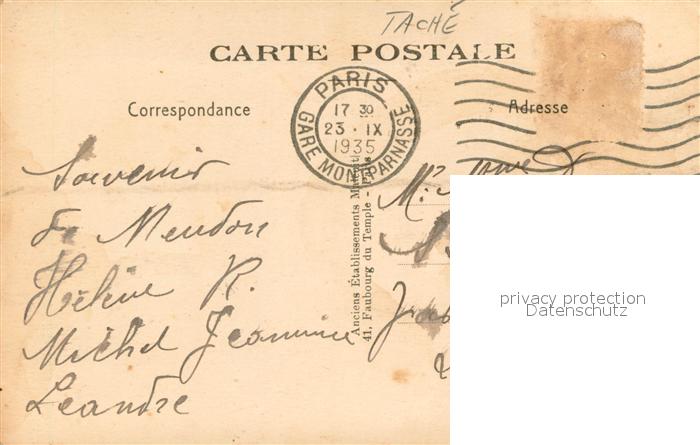 TACHÉ
CARTE POSTALE
PARIS
17 30
23 · IX
1935
GARE MONTPARNASSE
Correspondance
Adresse
Souvenir
de Meudon
Hélène R.
Michel Jeannine
Leandre
Anciens Établissements
41, Faubourg du Temple - Paris
privacy protection
Datenschutz